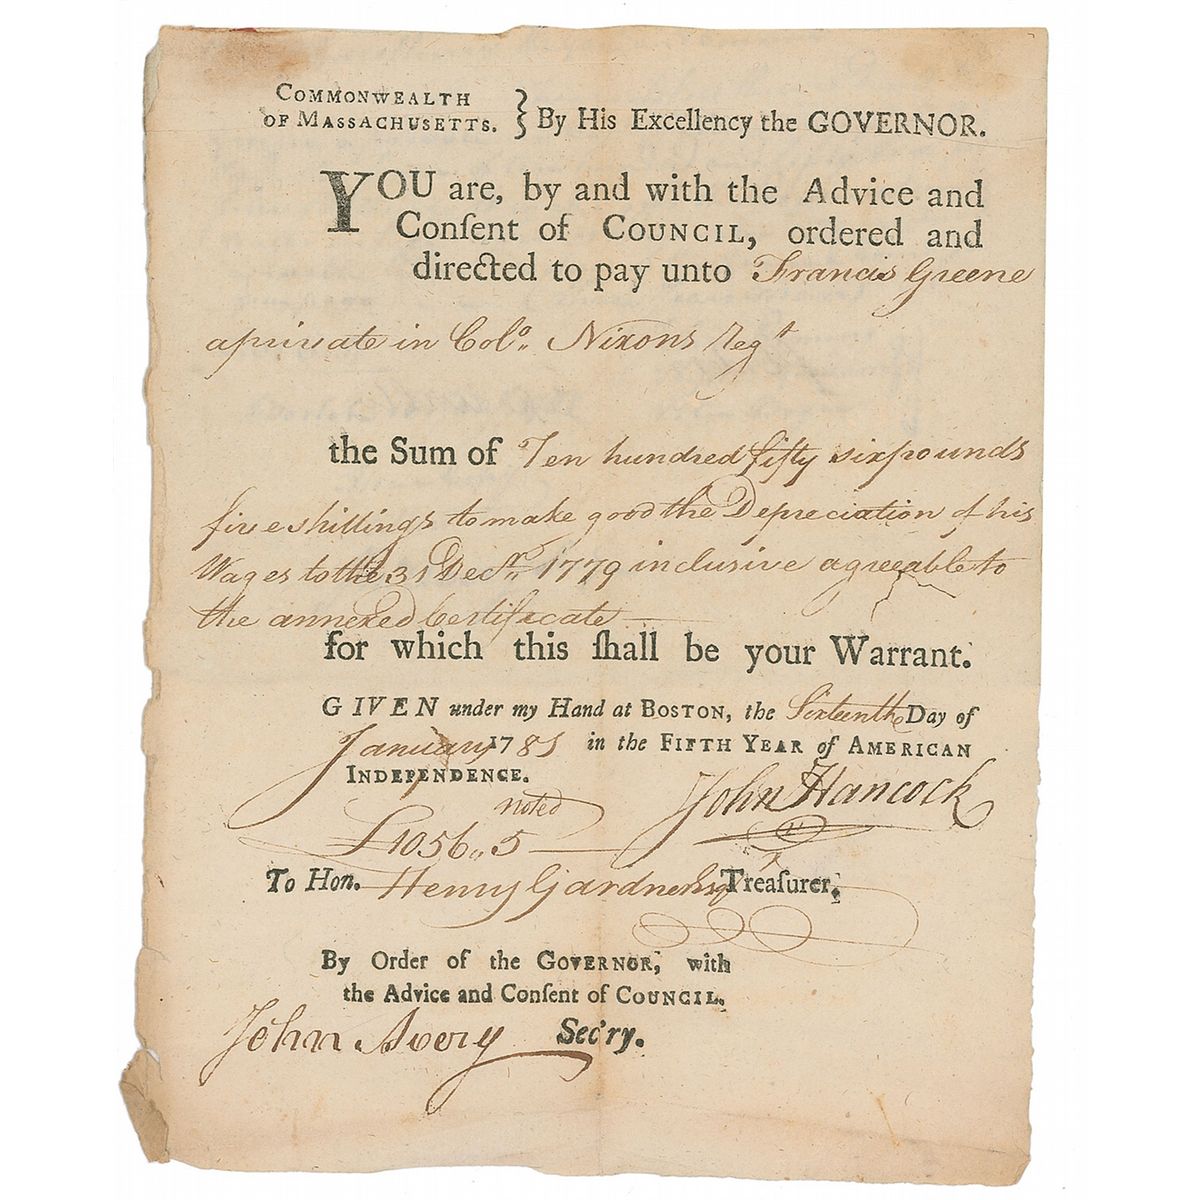 COMMONWEALTH
OF MASSACHUSETTS. } By His Excellency the GOVERNOR.
YOU are, by and with the Advice and
Conſent of COUNCIL, ordered and
directed to pay unto Francis Greene
a private in Colo. Nixons Regt
the Sum of Ten hundred fifty six pounds
five shillings to make good the Depreciation of his
Wages to the 31 Decr. 1779 inclusive agreeable to
the annexed Certificate
for which this ſhall be your Warrant.
GIVEN under my Hand at BOSTON, the Sixteenth Day of
January 1781 in the FIFTH YEAR of AMERICAN
INDEPENDENCE.
noted
John Hancock
£1056,,5
To Hon. Henry Gardner Esq Treaſurer.
By Order of the GOVERNOR, with
the Advice and Conſent of COUNCIL.
John Avery Sec'ry.